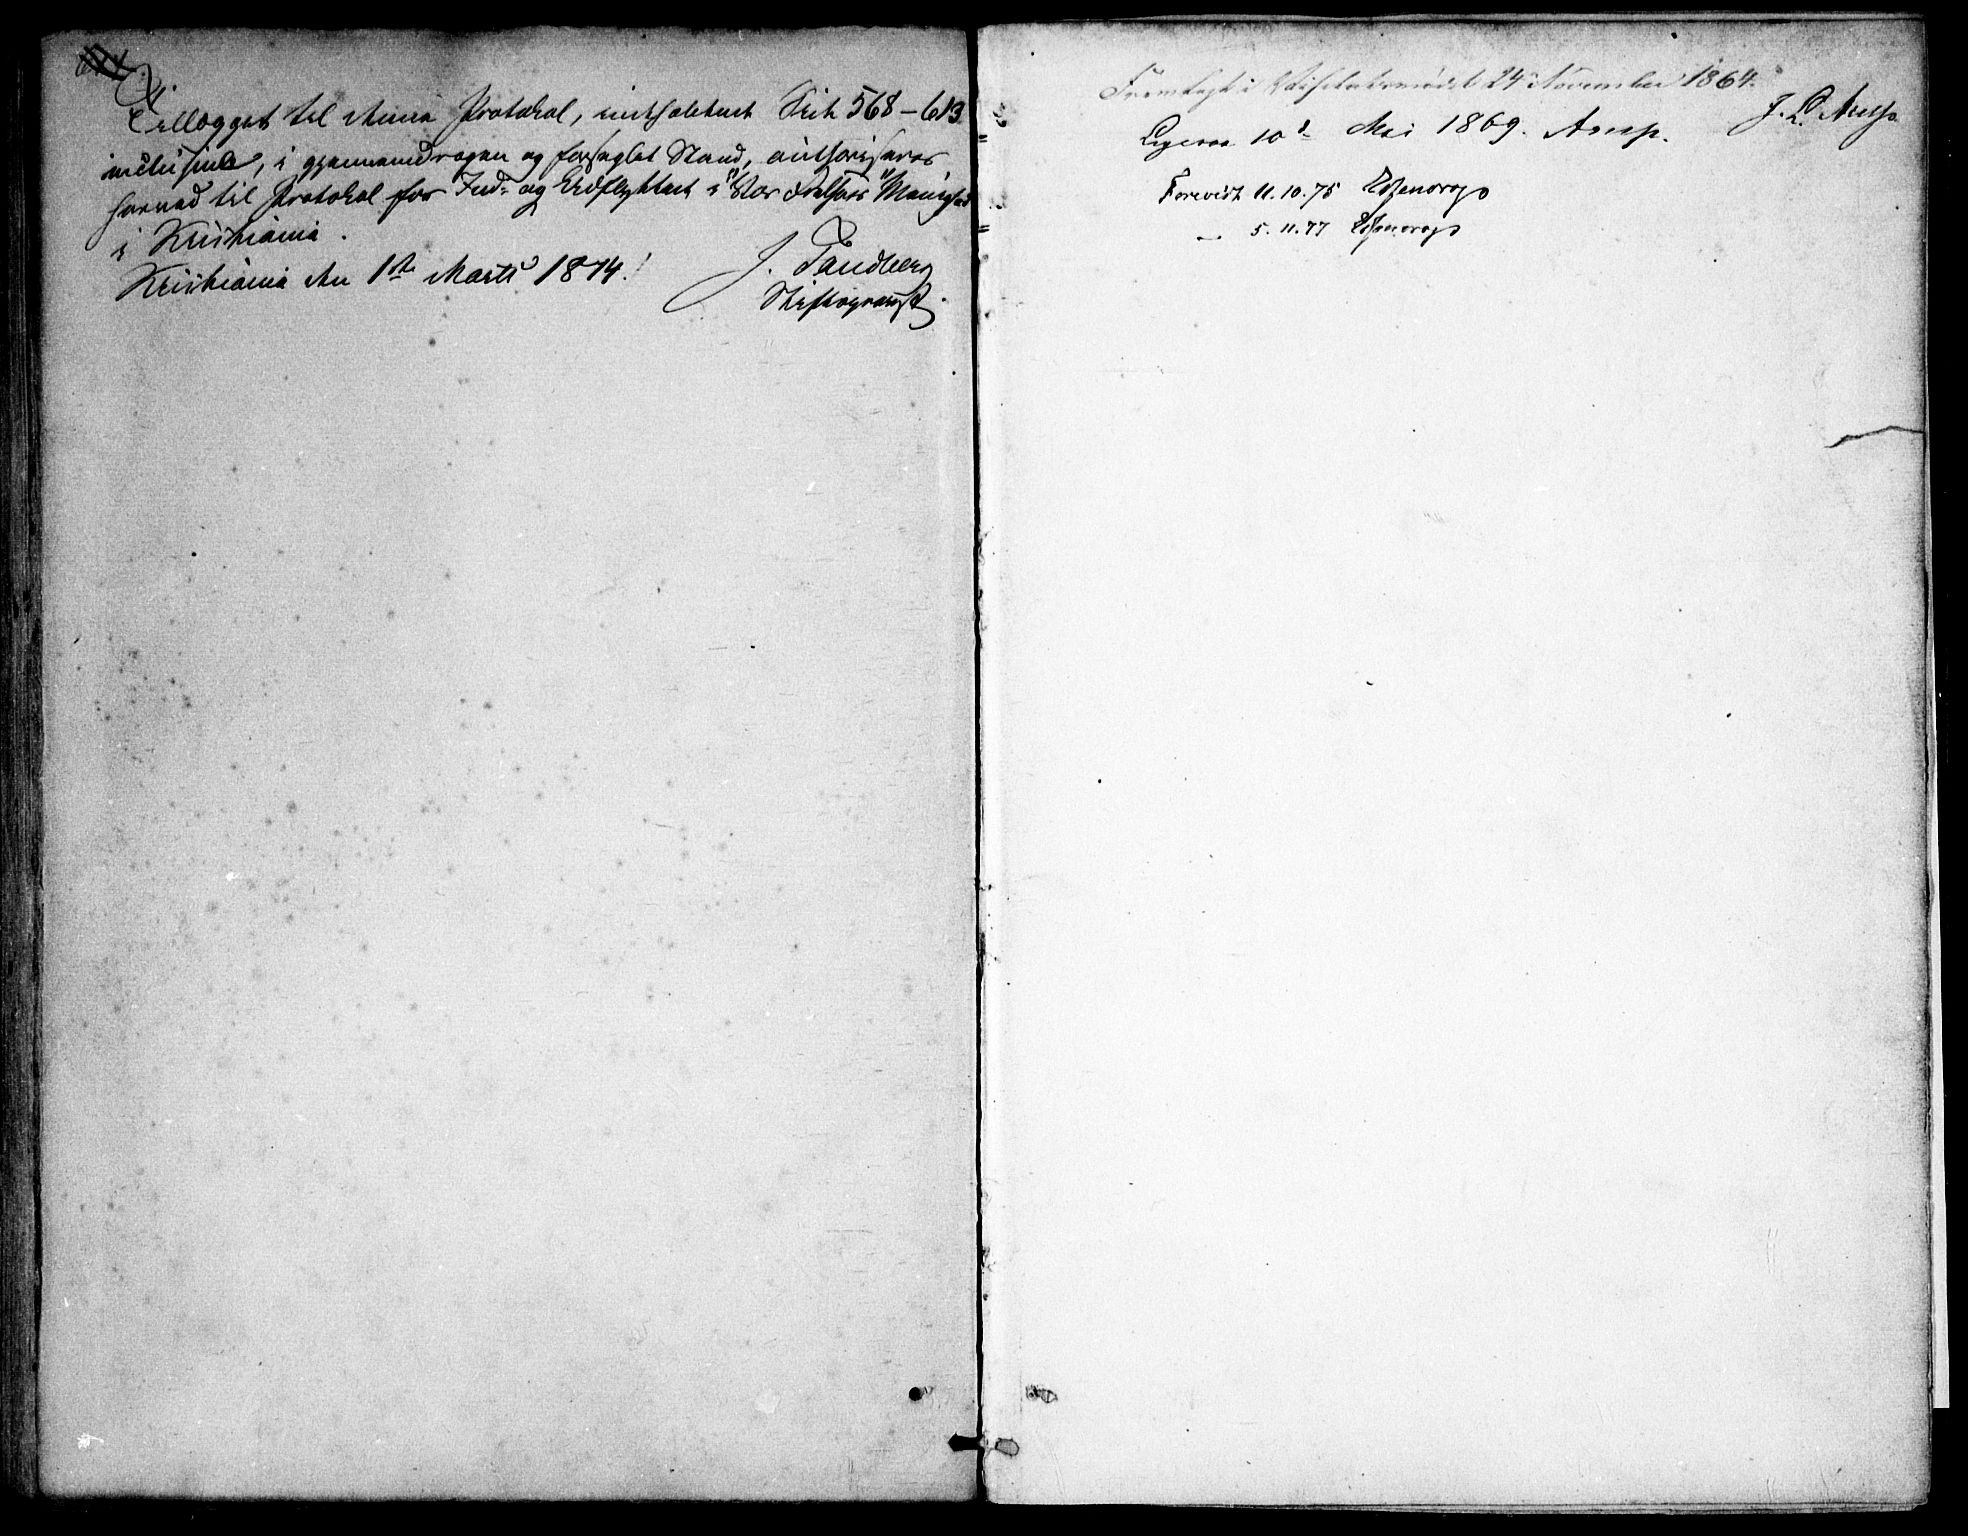 Tillægget til denne Protokol, indholdende Side 568–613
inclusive, i gjennemdragen og forseglet Stand, authoriseres
herved til Protokol for Ind- og Udflyttede i "Vor Frelsers" Menighed
i Kristiania.
Kristiania den 1ste Marts 1874.
J. Tandberg
Stiftsprovst.
Fremlagt i Visitatsmødet 24 November 1864.
J. L. Arup
Ligesaa 10d Mai 1869. Arup.
Forevist 11.10.75 Essendrop
— 5.11.77 Essendrop